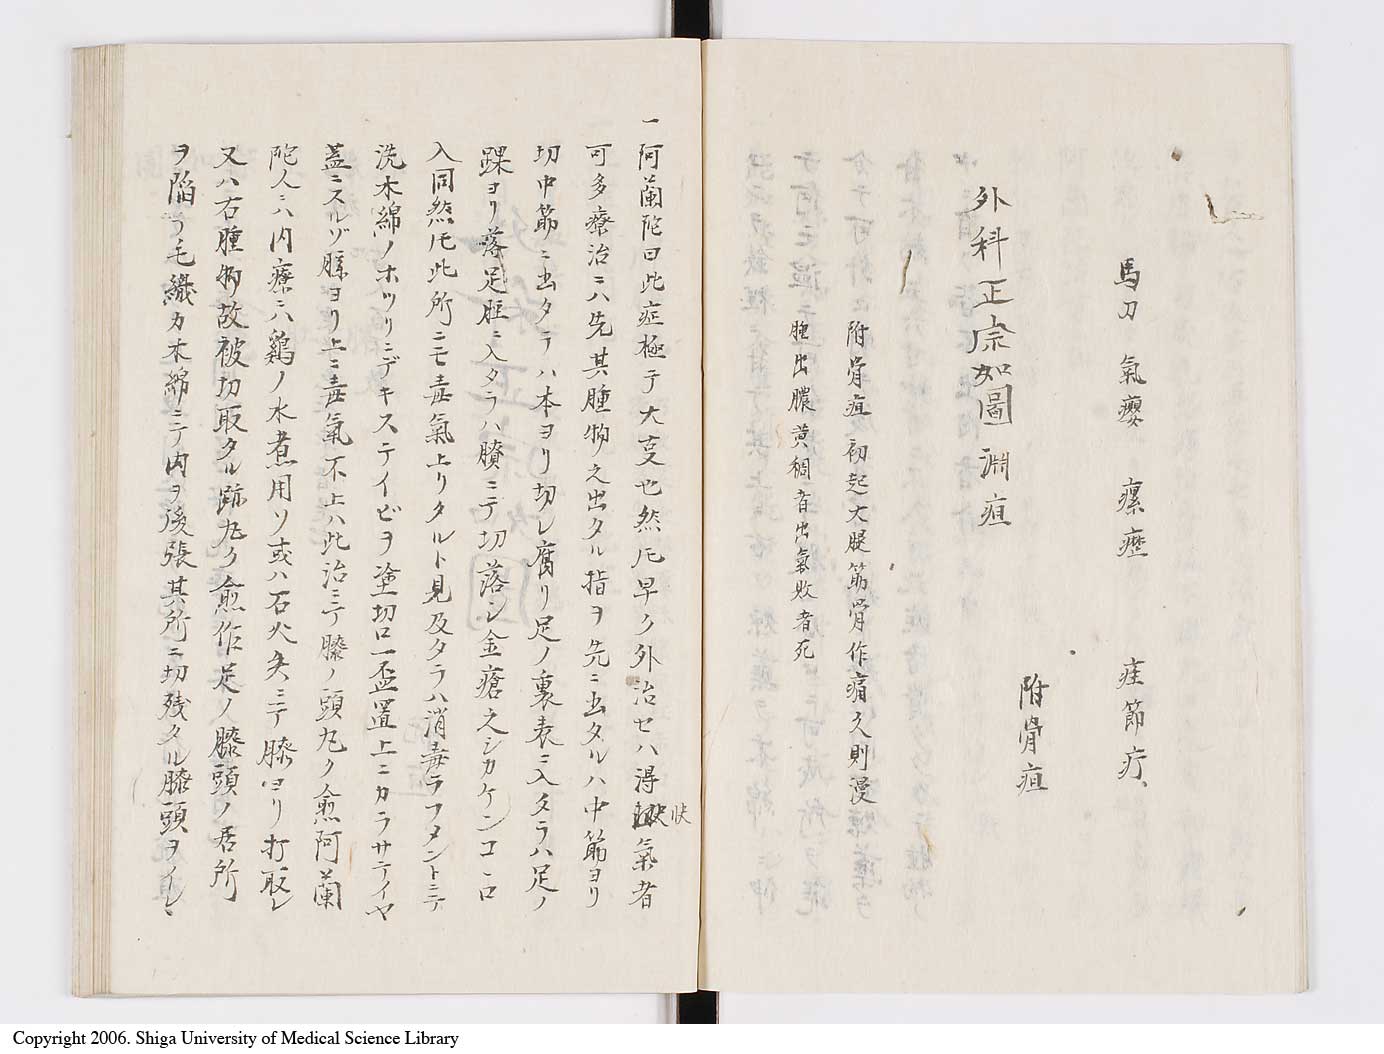 馬刀　氣癭　瘰癧　疰節疔
附骨疽
外科正宗如圖　淵疽
附骨疽初起大腿筋骨作痛久則漫
腫出膿黄稠者出氣敗者死
一阿蘭陀曰此症極テ大叓也然𪜈早ク外治セハ得快氣者
可多療治ニハ先其腫物之出タル指ヲ先ニ出タルハ中筋ヨリ
切中筋ニ出タラハ本ヨリ切レ腐リ足ノ裏表ニ入タラハ足ノ
踝ヨリ落足脛ニ入タラハ臏ニテ切落シ金瘡之シカケンコヽロ
入同然𪜈此所ニモ毒氣上リタルト見及タラハ消毒ラフメントニテ
洗木綿ノホツリニデキステイビヲ塗切口一盃置上ニカラサテイヤ
蓋ニスルゾ膝ヨリ上ニ毒氣不上ハ此治ニテ膝ノ頭丸ク愈阿蘭
陀人ニハ内療ニハ鷄ノ水煮用ソ或ハ石火矢ニテ膝ヨリ打取レ
又ハ右腫物故被切取タル跡丸ク愈作足ノ膝頭ノ居所
ヲ陷テ毛織カ木綿ニテ内ヲ後張其所ニ切残タル膝頭ヲイレ、
Copyright 2006. Shiga University of Medical Science Library